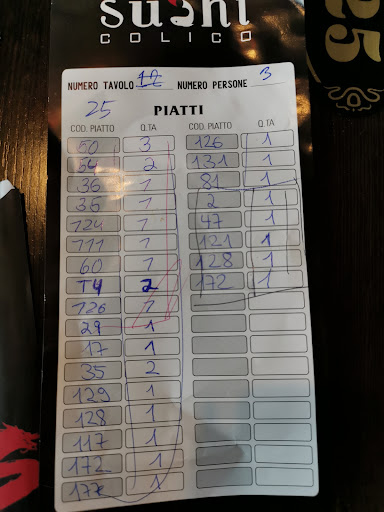 sushi
COLICO
25
NUMERO TAVOLO 12 NUMERO PERSONE 3
25 PIATTI
COD. PIATTO Q.TA COD. PIATTO Q.TA
50 3 126 1
54 2 131 1
36 1 81 1
36 1 2 1
124 1 47 1
111 1 121 1
60 1 128 1
T4 2 172 1
126 1
29 1
17 1
35 2
129 1
128 1
117 1
172 1
177 1